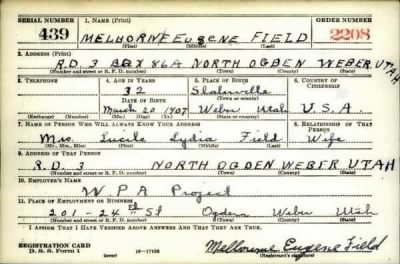 SERIAL NUMBER 1. NAME (Print) ORDER NUMBER
439 MELBORNE EUGENE FIELD 2208
(First) (Middle) (Last)
2. ADDRESS (Print)
R.D. 3 BOX 86A NORTH OGDEN WEBER UTAH
(Number and street or R. F. D. number) (Town) (County) (State)
3. TELEPHONE 4. AGE IN YEARS 5. PLACE OF BIRTH 6. COUNTRY OF CITIZENSHIP
32 Slaterville
DATE OF BIRTH (Town or county)
March 20 1907 Weber Utah U.S.A.
(Exchange) (Number) (Mo.) (Day) (Yr.) (State or country)
7. NAME OF PERSON WHO WILL ALWAYS KNOW YOUR ADDRESS 8. RELATIONSHIP OF THAT PERSON
Mrs. Lucile Lydia Field Wife
(Mr., Mrs., Miss) (First) (Middle) (Last)
9. ADDRESS OF THAT PERSON
R.D. 3 NORTH OGDEN WEBER UTAH
(Number and street or R. F. D. number) (Town) (County) (State)
10. EMPLOYER'S NAME
W.P.A Project
11. PLACE OF EMPLOYMENT OR BUSINESS
201-24 St Ogden Weber Utah
(Number and street or R. F. D. number) (Town) (County) (State)
I AFFIRM THAT I HAVE VERIFIED ABOVE ANSWERS AND THAT THEY ARE TRUE.
REGISTRATION CARD
D. S. S. Form 1 (over) 16-17105 Melbourne Eugene Field
(Registrant's signature)